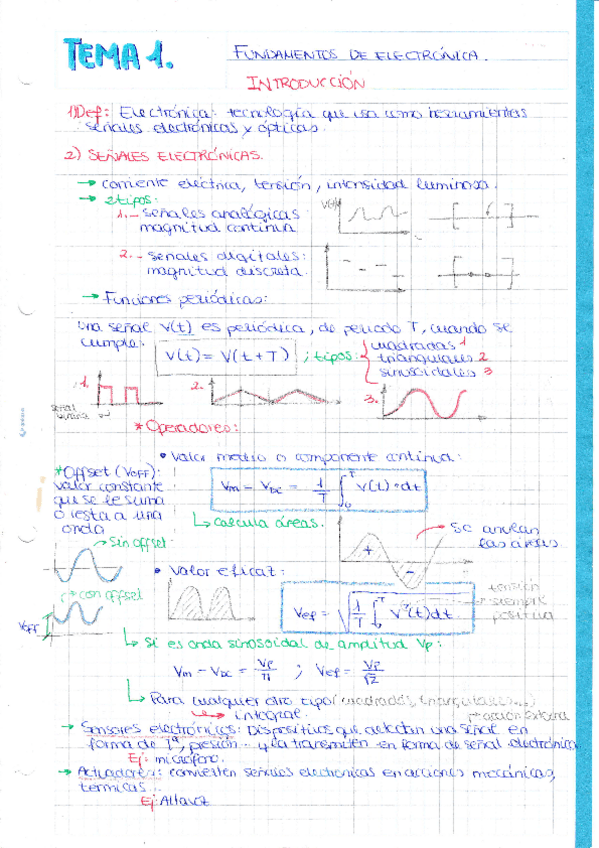 TEMA 1.
FUNDAMENTOS DE ELECTRÓNICA.
INTRODUCCIÓN
1) Def: Electrónica: tecnología que usa como herramientas
señales electrónicas y ópticas.
2) SEÑALES ELECTRÓNICAS.
→ corriente eléctrica, tensión, intensidad luminosa.
→ 2 tipos:
1.- señales analógicas
magnitud continua
V(t)
2.- señales digitales:
magnitud discreta.
→ Funciones periódicas:
Una señal v(t) es periódica, de periodo T, cuando se
cumple: V(t) = V(t+T) ; tipos:
cuadradas 1
triangulares 2
sinusoidales 3
1.
2.
3.
señal
* Operadores:
• Valor medio o componente continua:
* Offset (VOFF):
valor constante
que se le suma
o resta a una
onda
Vm - VDC = 1/T ∫₀ᵀ V(t)·dt
↳ calcula áreas.
+
-
Se anulan
las áreas
→ Sin offset
→ con offset
VOFF
• Valor eficaz:
Vef = √(1/T ∫₀ᵀ V²(t)dt.
tensión
siempre
positiva
↳ Si es onda sinosoidal de amplitud Vp:
Vm - VDC = Vp/π ; Vef = Vp/√2
↳ Para cualquier otro tipo (cuadradas, triangulares...)
→ integral.
→ acción externa
→ Sensores electrónicos: Dispositivos que detectan una señal en
forma de Tª, presión... y la transmiten en forma de señal electrónica
Ej: micrófono.
→ Actuadores: convierten señales electrónicas en acciones mecánicas,
térmicas...
Ej: Altavoz